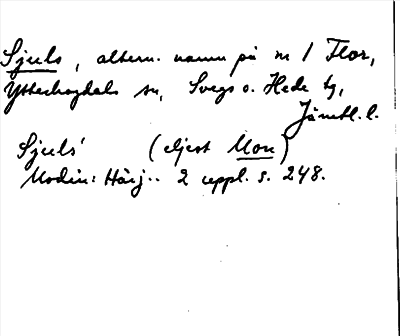 Sjuls, altern. namn på nr 1 Flor,
Ytterhogdals sn, Svegs o. Hede tg,
Jämtl. l.
Sjuls' (eljest Mon)
Modin: Härj.. 2 uppl. s. 248.